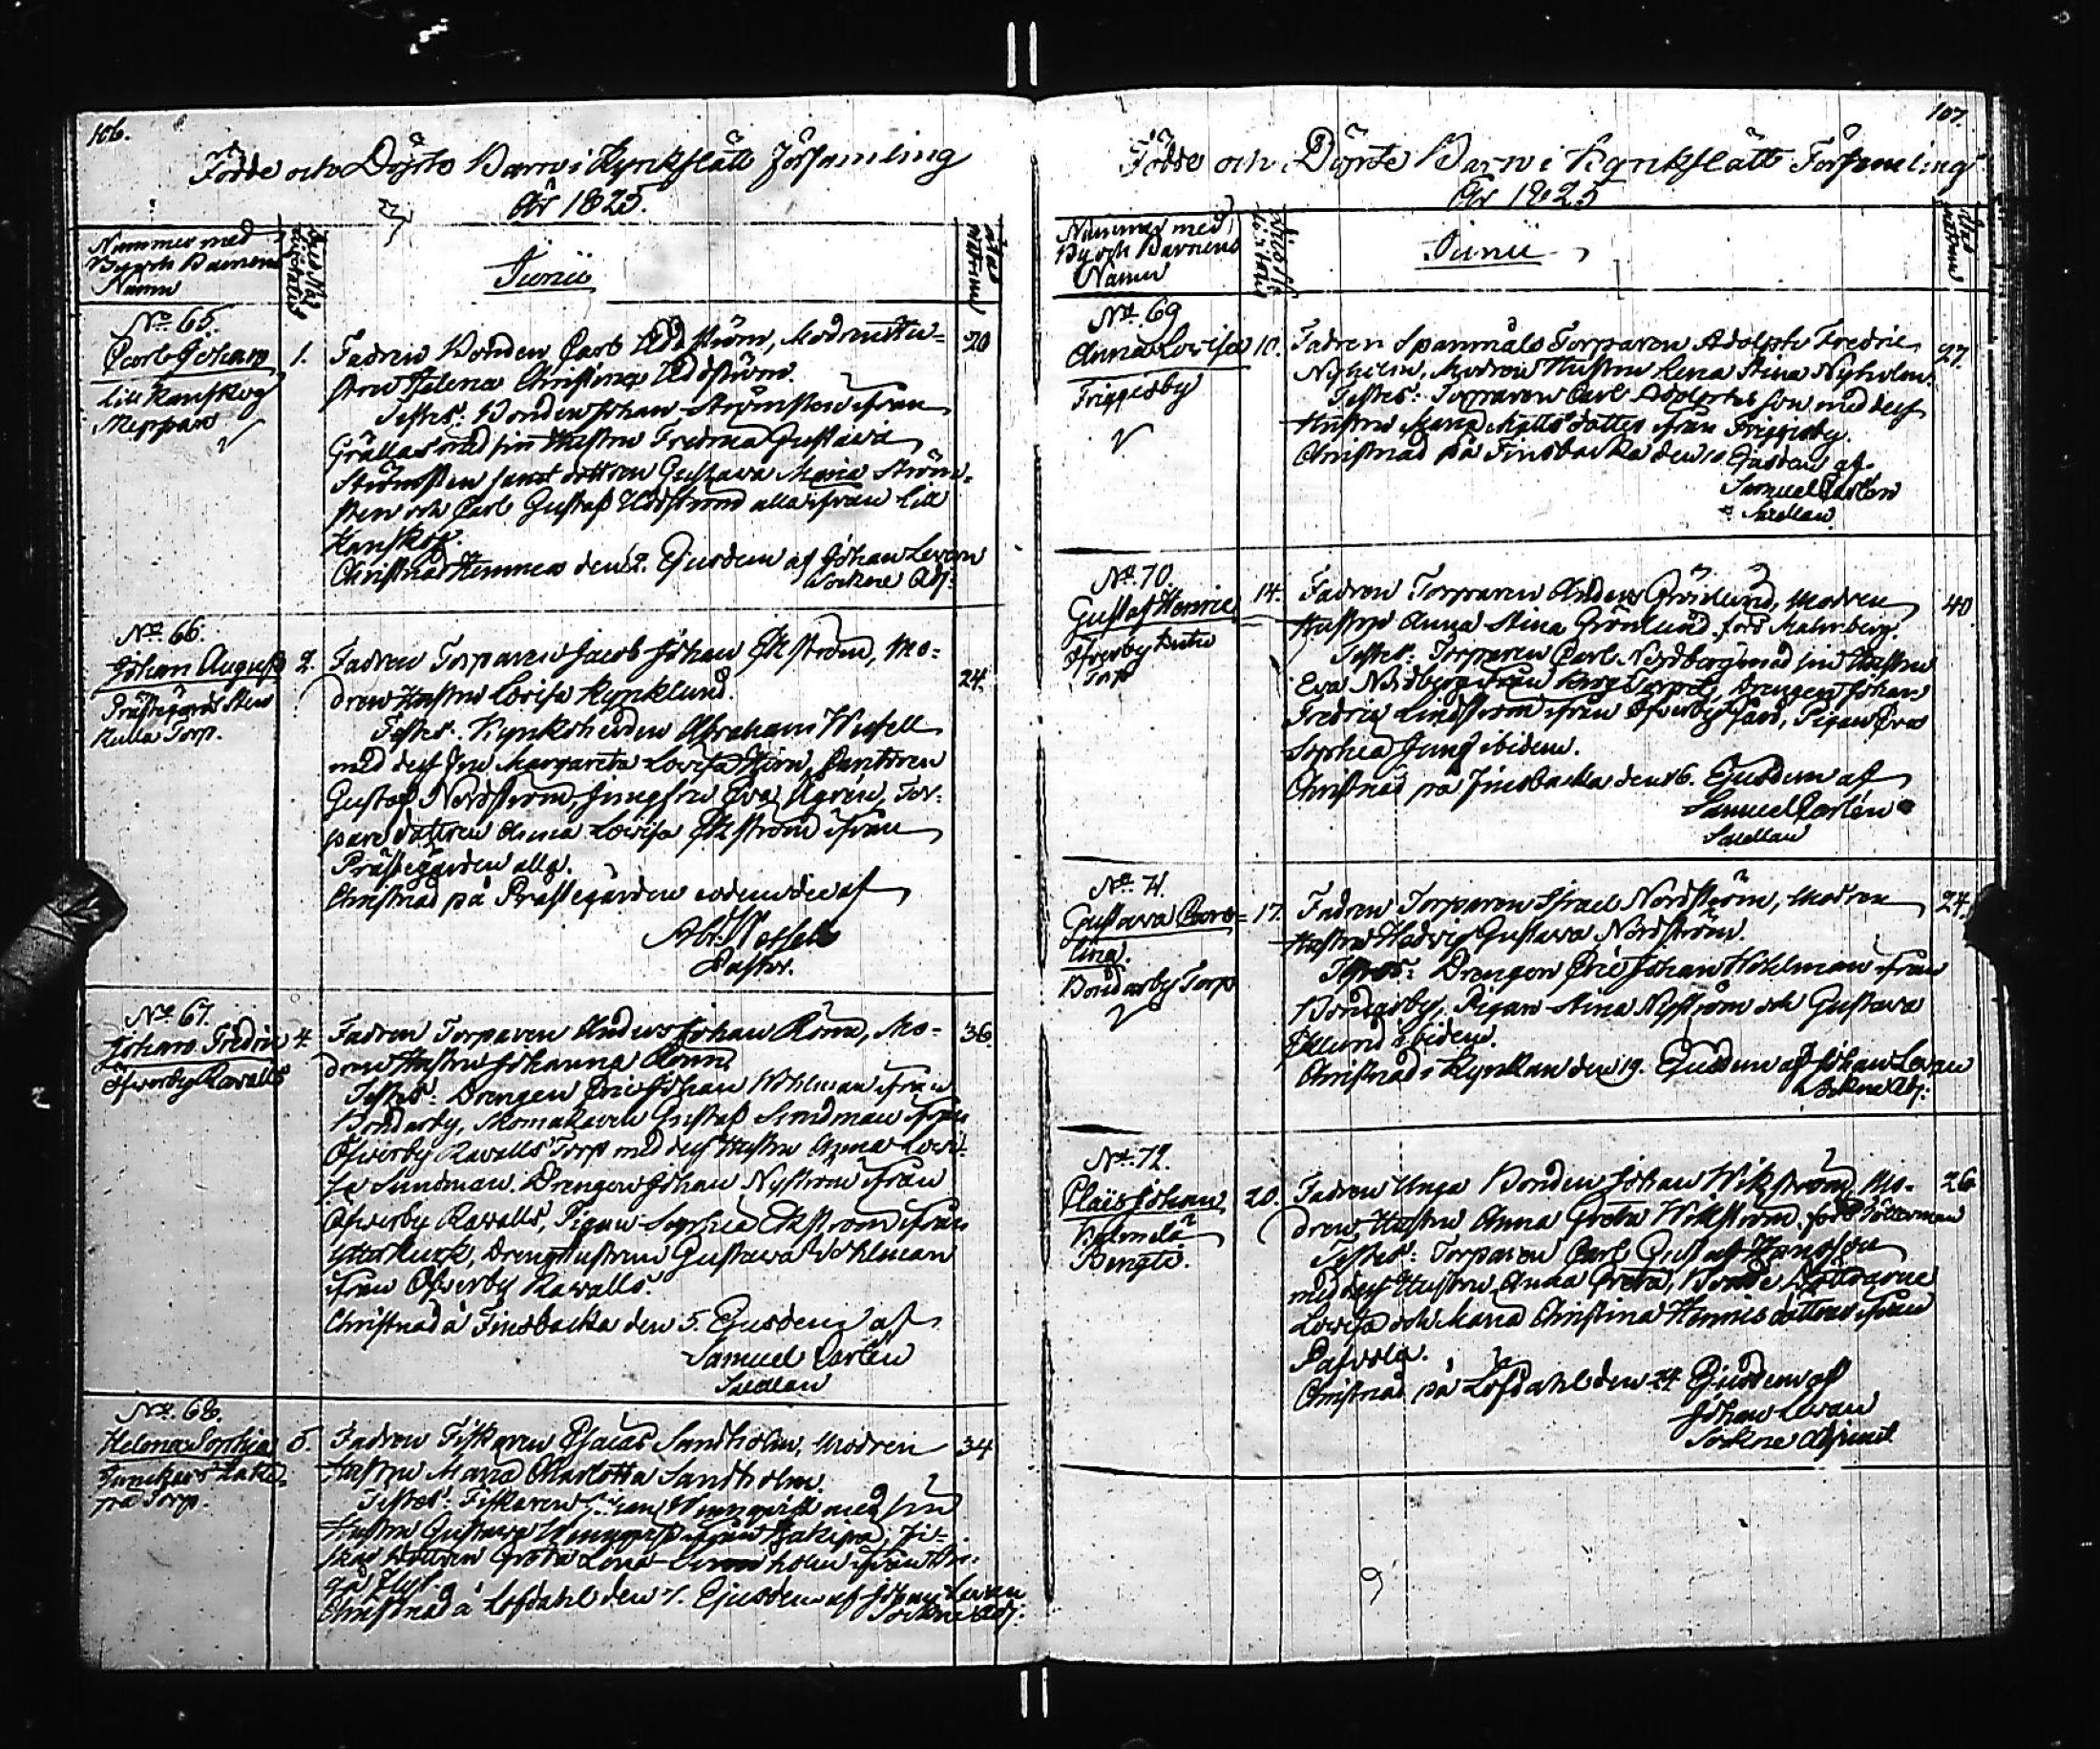 106.
Födde och Döpte Barn i Kyrkslätt Församling
År 1825.
Nummer med
By och Barnens
Namn
Junii
No. 65.
Carl Johan
Lill Kanskog
Meppars
1.
Fadren Bonden Carl Uddström, Modren Hu-
strun Helena Christina Uddström.
Testes: Bonden Johan Strömsten ifrån
Grällas med sin Hustru Fredrica Gustava
Strömsten samt dottren Gustava Maria Ström-
sten och Carl Gustaf Uddström alla ifrån Lill
Kanskog.
Christnad Hemma den 2. Ejusdem af Johan Levan
Sockne Adj:
20
No. 66.
Johan August
Prästegårds Sten
Kulla Torp.
2.
Fadren Torparen Jacob Johan Ekström, Mo-
dren Hustru Lovisa Kyrklund.
Testes: Kyrkoherden Abraham Wessell
med dess Fru Margareta Lovisa Hirn, Cantoren
Gustaf Nordström, Jungfru Eva Agrén, Tor-
pare dottren Anna Lovisa Ekström ifrån
Prästegården alla.
Christnad på Prästegården eodem die af
Abr. Wessell
Pastor.
24.
No. 67.
Johan Fredric
Öfverby Ravalls
4.
Fadren Torparen Anders Johan Rönn, Mo-
dren Hustru Johanna Rönn
Testes: Drengen Eric Johan Wohlman ifrån
Bondarby, Skomakaren Gustaf Sundman ifrån
Öfverby Ravalls Torp med dess Hustru Anna Lovi-
sa Sundman. Drengen Johan Nyström ifrån
Öfverby Ravalls, Pigan Sophia Ekström ifrån
Drenghustrun Gustava Wohlman
ifrån Öfverby Ravalls.
Christnad å Finsbacka den 5. Ejusdem af
Samuel Carlén
Sacellan
36.
No. 68.
Helena Sophia
Junckars
på Torp.
5.
Fadren Fiskaren Esaias Sandholm, Modren
Hustru Maria Charlotta Sandholm.
Testes: Fiskaren Johan Wennqvist med sin
Hustru Gustava Wennqvist ifrån Fi-
skar dottren Greta Lena holm ifrån
Christnad å Löfdahl den 7. Ejusdem af Johan Levan
Sockne Adj:
34
107.
Födde och Döpte Barn i Kyrkslätt Församling
År 1825
Nummer med
By och Barnens
Namn
Junii
No. 69
Anna Lovisa
Friggesby
10.
Fadren Spanmåls Torparen Adolph Fredric
Nyholm, Modren Hustru Lena Stina Nyholm.
Testes: Torparen Carl Adolphsson med dess
Hustru Maria Matts dotter ifrån Friggesby.
Christnad på Finsbacka den 10 Ejusdem af
Samuel Carlén
Sacellan
27.
No. 70.
Gustaf Henric
Öfverby
Torp
14.
Fadren Torparen Anders Grönlund, Modren
Hustru Anna Stina Grönlund född Malmberg.
Testes: Torparen Carl Nordberg med sin Hustru
Eva Nordberg ifrån Drengen Johan
Fredric Lindström ifrån Öfverby Gård, Pigan Eva
Sophia Ljung ibidem.
Christnad på Finsbacka den 16. Ejusdem af
Samuel Carlén
Sacellan
40.
No. 71.
Gustava Caro-
lina.
Bondarby Torp
17.
Fadren Torparen Israel Nordström, Modren
Hustru Hedvig Gustava Nordström.
Testes: Drengen Eric Johan Wohlman ifrån
Bondarby, Pigan Stina Nyström och Gustava
Eklund ibidem.
Christnad i Kyrkan den 19. Ejusdem af Johan Levan
Sockne Adj:
24.
No. 72.
Claës Johan
Bengts.
20.
Fadren Unga Bonden Johan Wikström, Mo-
dren Hustru Anna Greta Wikström född
Testes: Torparen Carl Gustaf Hansson
med dess Hustru Anna Greta, Bonde Döttrarne
Lovisa och Maria Christina Hennics döttrar ifrån
Christnad på Löfdahl den 24 Ejusdem af
Johan Levan
Sockne Adjunct
26